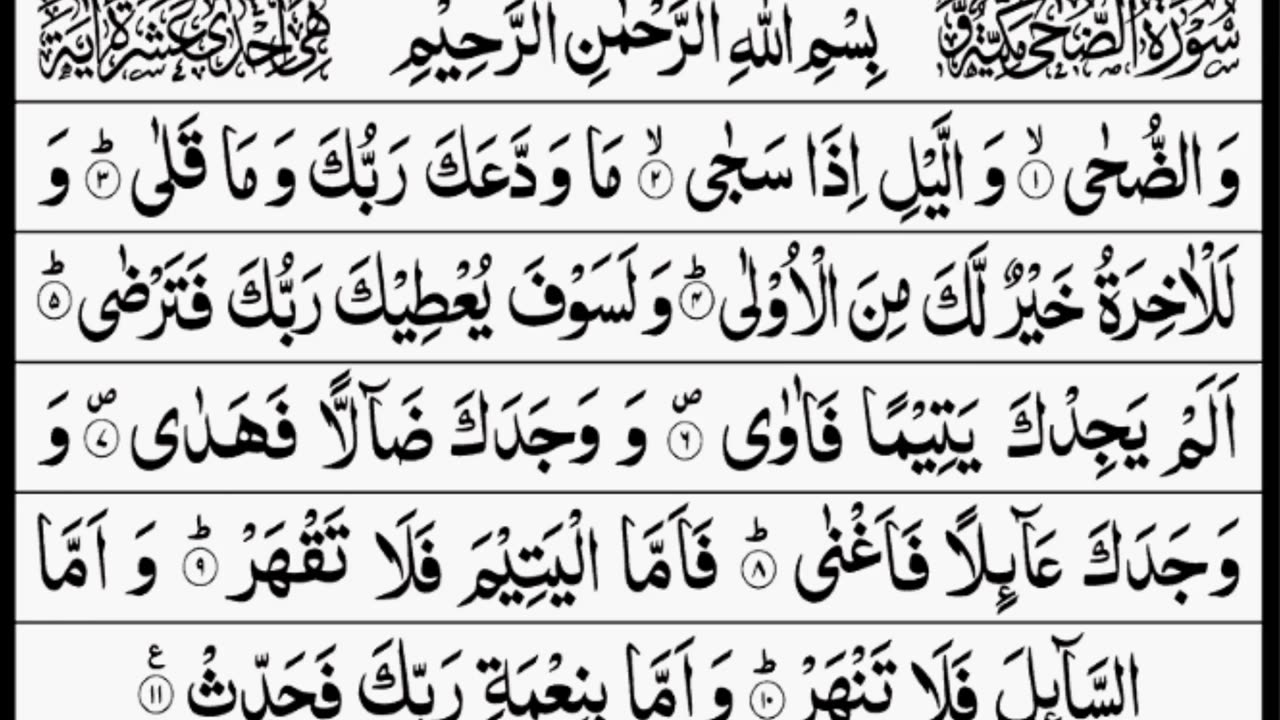 سُوْرَةُ الضُّحٰى مَكِّيَّةٌ وَّ بِسْمِ اللّٰهِ الرَّحْمٰنِ الرَّحِيْمِ هِىَ اِحْدٰى عَشْرَةَ اٰيَةً
وَ الضُّحٰىۙ ﴿۱﴾ وَ الَّيْلِ اِذَا سَجٰىۙ ﴿۲﴾ مَا وَدَّعَكَ رَبُّكَ وَ مَا قَلٰىؕ ﴿۳﴾ وَ
لَلْاٰخِرَةُ خَيْرٌ لَّكَ مِنَ الْاُوْلٰىؕ ﴿۴﴾ وَ لَسَوْفَ يُعْطِيْكَ رَبُّكَ فَتَرْضٰىؕ ﴿۵﴾
اَلَمْ يَجِدْكَ يَتِيْمًا فَاٰوٰى۪ ﴿۶﴾ وَ وَجَدَكَ ضَآلًّا فَهَدٰى۪ ﴿۷﴾ وَ
وَجَدَكَ عَآىِٕلًا فَاَغْنٰىؕ ﴿۸﴾ فَاَمَّا الْيَتِيْمَ فَلَا تَقْهَرْؕ ﴿۹﴾ وَ اَمَّا
السَّآىِٕلَ فَلَا تَنْهَرْؕ ﴿۱۰﴾ وَ اَمَّا بِنِعْمَةِ رَبِّكَ فَحَدِّثْ ﴿۱۱﴾ ع